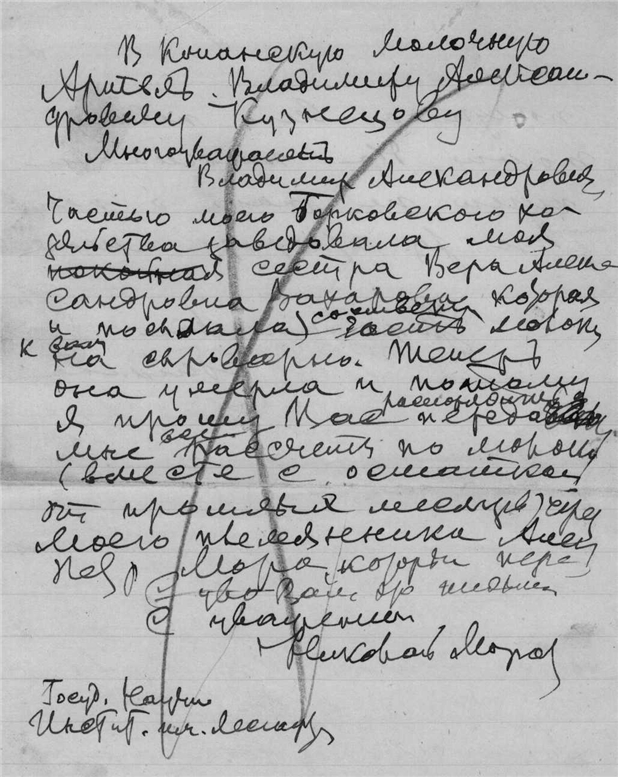 В Копанскую молочную
Артель. Владимиру Алексан-
дровичу Кузнецову
Многоуважаемый
Владимир Александрович,
Частью моего Борковского хо-
зяйства заведовала моя
покойная сестра Вера Алек-
сандровна Захарова, которая
и посылала
к вам
на сыроварню. Теперь
она умерла и потому
я прошу Вас
мне расчет по молоку
(вместе с остатком
от прошлых месяцев) через
моего племянника
Мора который пере
С уваж
С уважением
Николай Мороз
Госуд. Научн
Инстит. им. Лесгафт